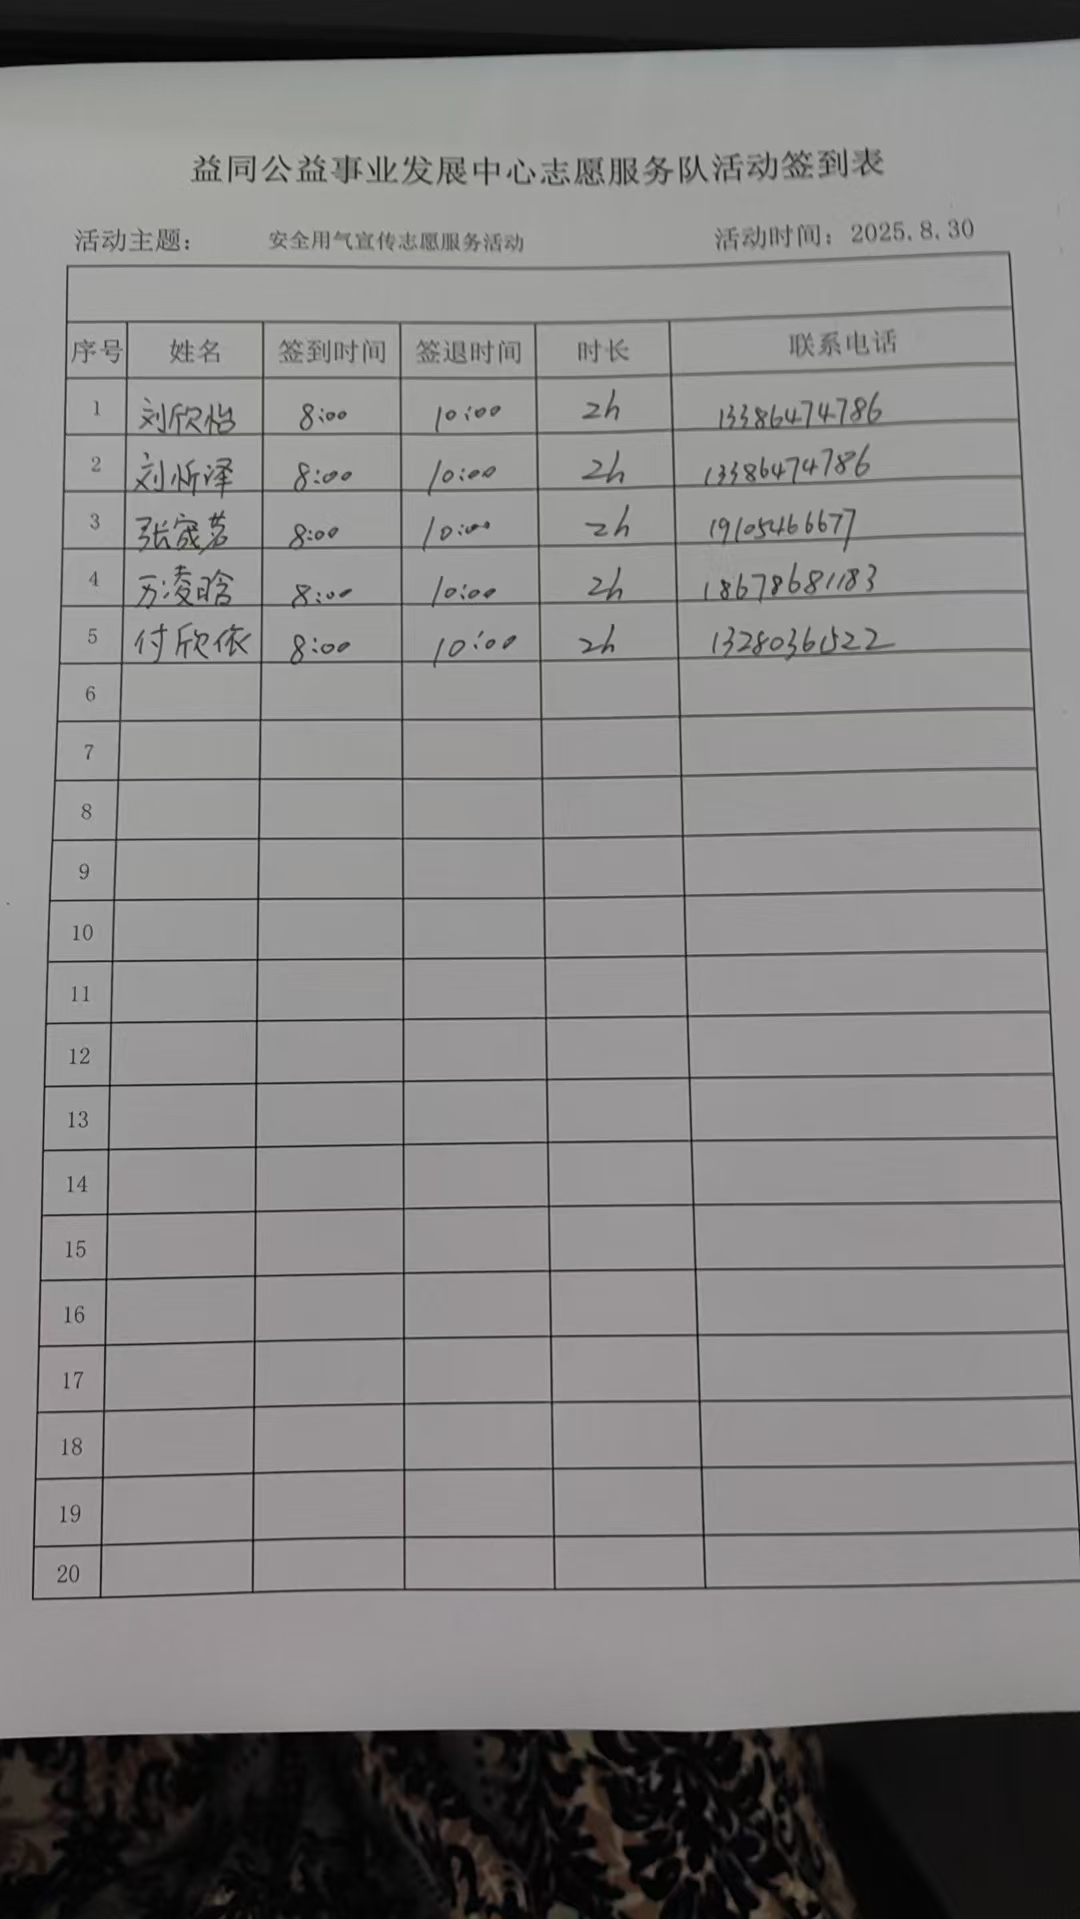 益同公益事业发展中心志愿服务队活动签到表
活动主题: 安全用气宣传志愿服务活动 活动时间: 2025.8.30
序号 姓名 签到时间 签退时间 时长 联系电话
1 刘欣怡 8:00 10:00 2h 13386474786
2 刘忻泽 8:00 10:00 2h 13386474786
3 张宬茗 8:00 10:00 2h 19105466677
4 万凌晗 8:00 10:00 2h 18678681183
5 付欣依 8:00 10:00 2h 13280361522
6
7
8
9
10
11
12
13
14
15
16
17
18
19
20